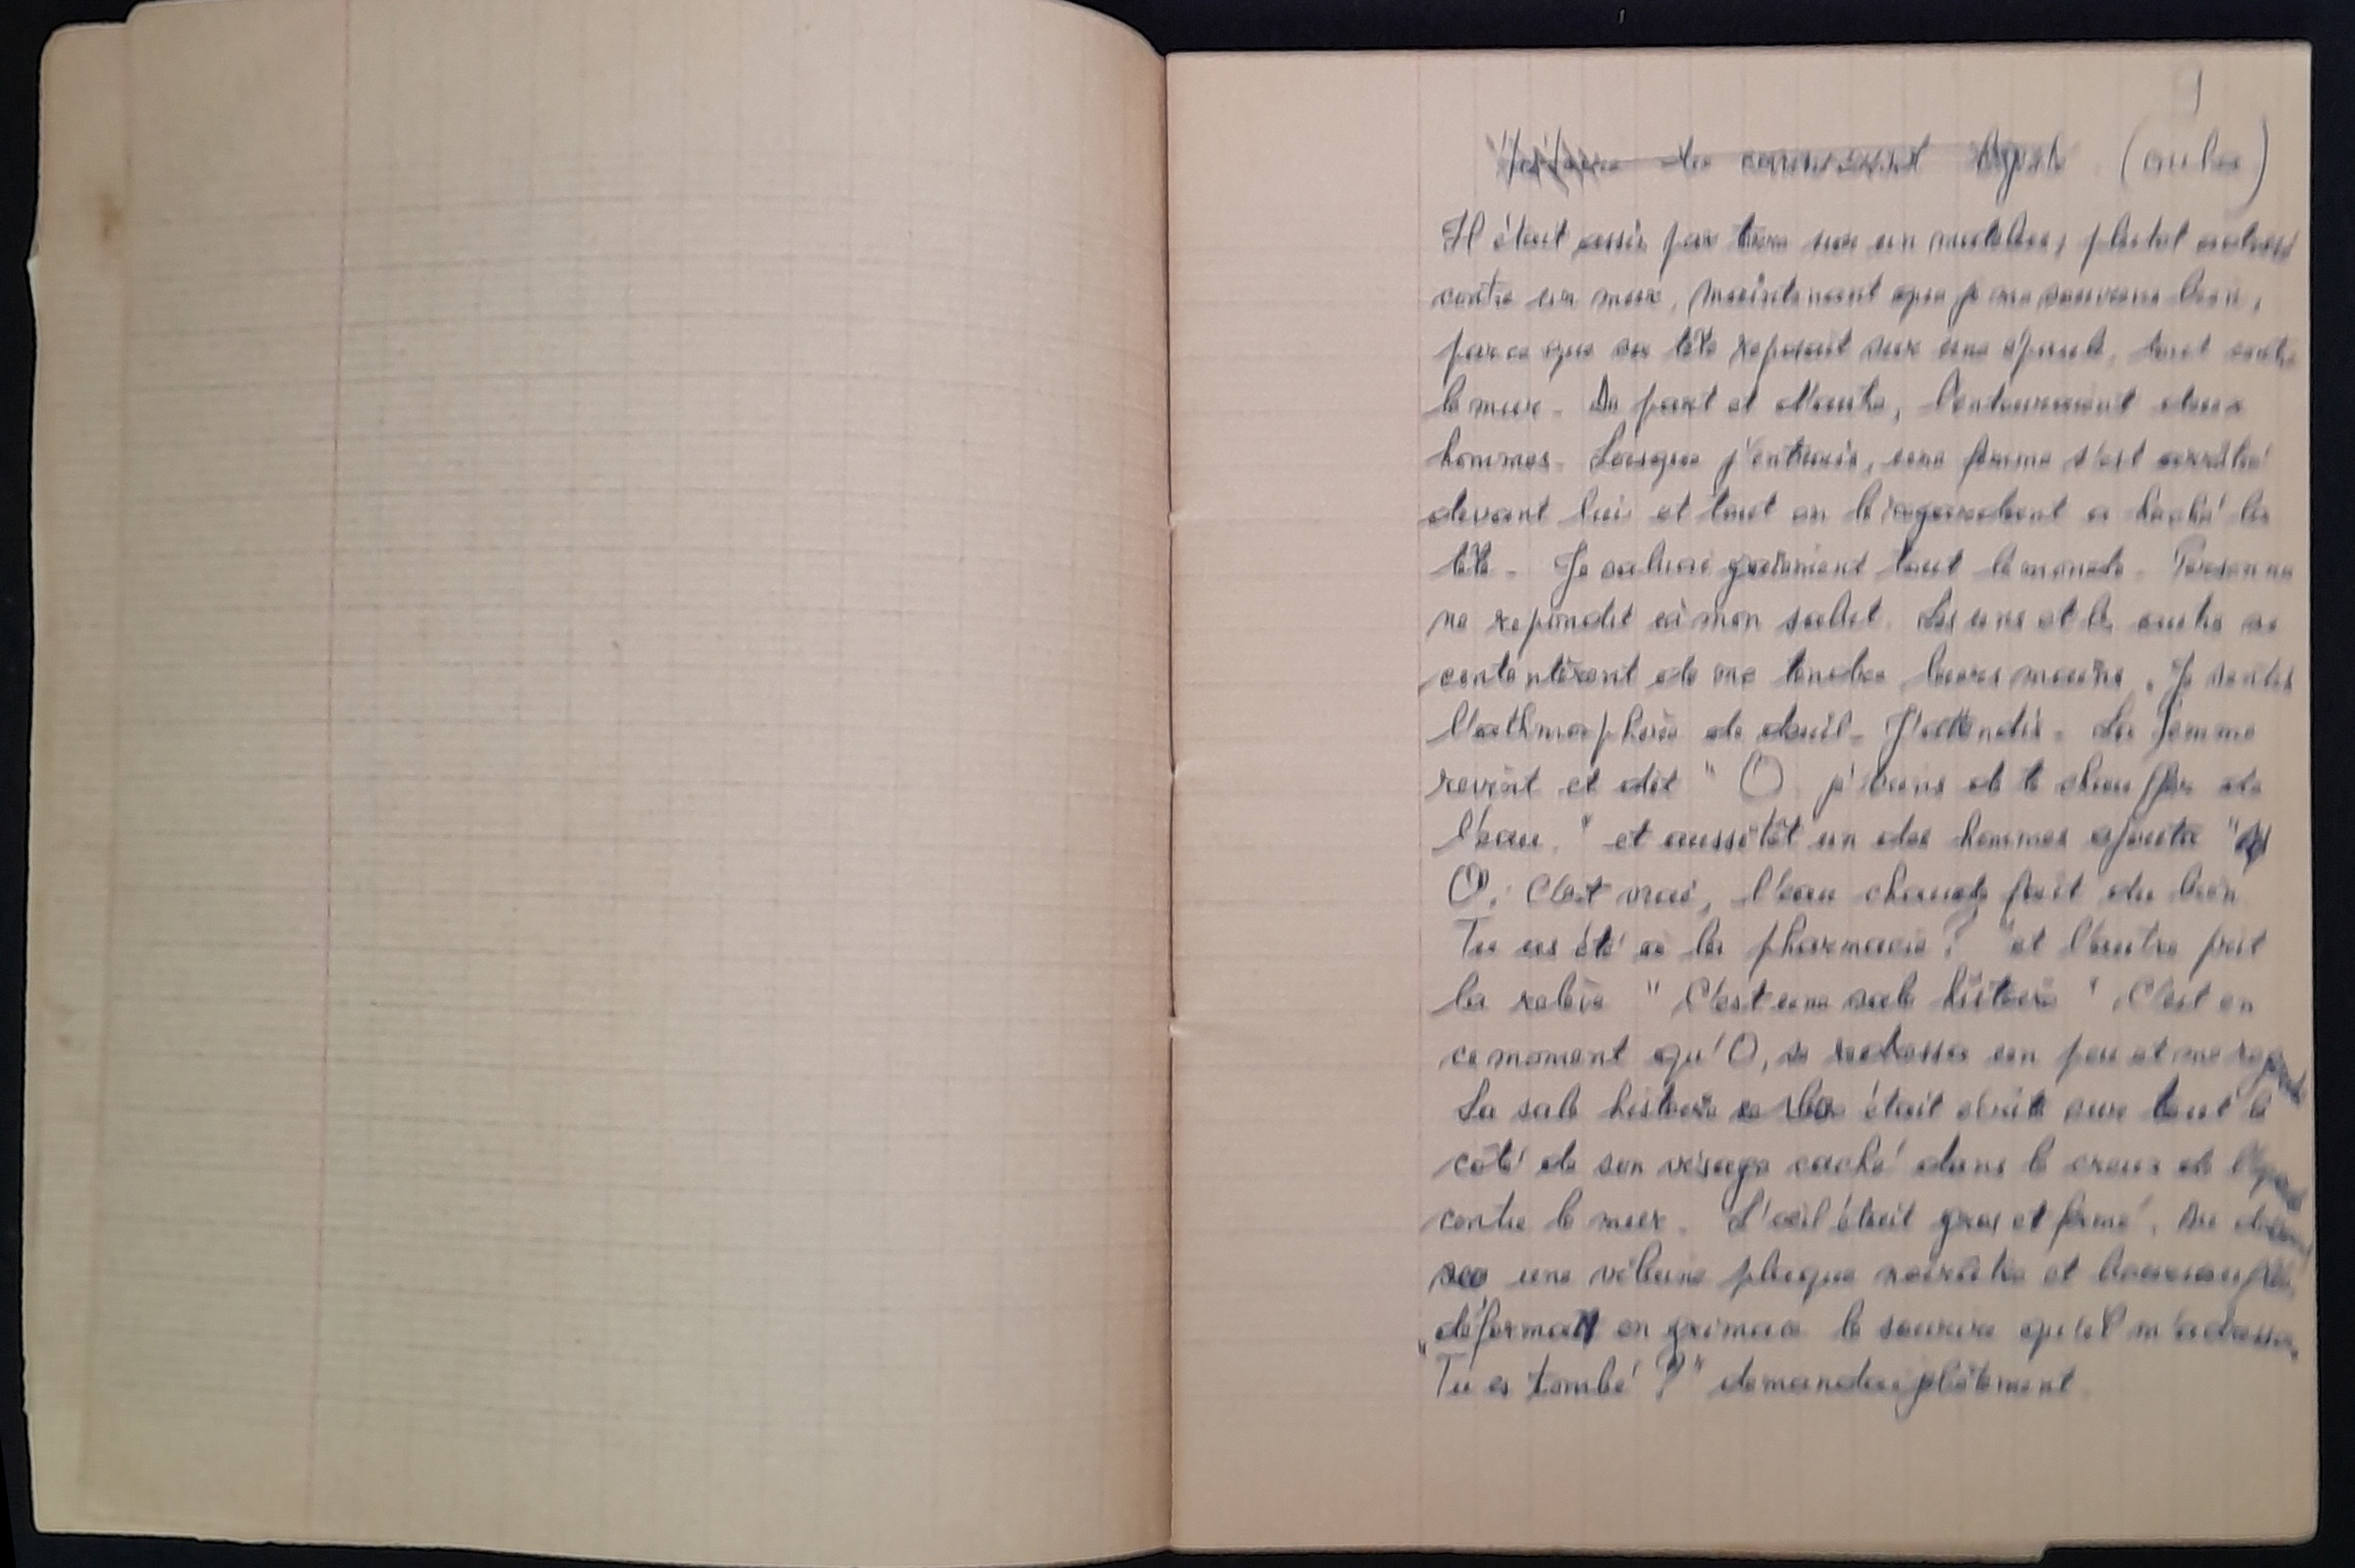 1
Il était assis par terre sur un matelas, plutot adossé
contre un mur, maintenant que je me souviens bien,
parce que sa tête reposait sur une épaule, tout contre
le mur. De part et d'autre, l'entouraient deux
hommes. Lorsque j'entrais, une femme s'est arrêté
devant lui et tout en le regardant a hoché la
tête. Je saluai gaiement tout le monde. Personne
ne repondit à mon salut. Les uns et les autre se
contentèrent de me tendre leurs mains. Je sentis
l'athmosphère de deuil. J'attendis. La femme
revint et dit " O. j'viens de te chauffer de
l'eau. " et aussitôt un des hommes ajouta "
O. C'est vrai, l'eau chaude fait du bien
Tu as été à la pharmacie ? " et l'autre prit
la relève " C'est une sale histoire ". C'est en
ce moment qu'O, se redressa un peu et me regarda
La sale histoire était écrite sur tout le
côté de son visage caché dans le creux de l'épaule
contre le mur. L'œil était gros et fermé. Au dessous
une vilaine plaque noirâtre et boursouflée
déformait en grimace le sourire qu'il m'adressa.
" Tu es tombé ? " demandai platement.